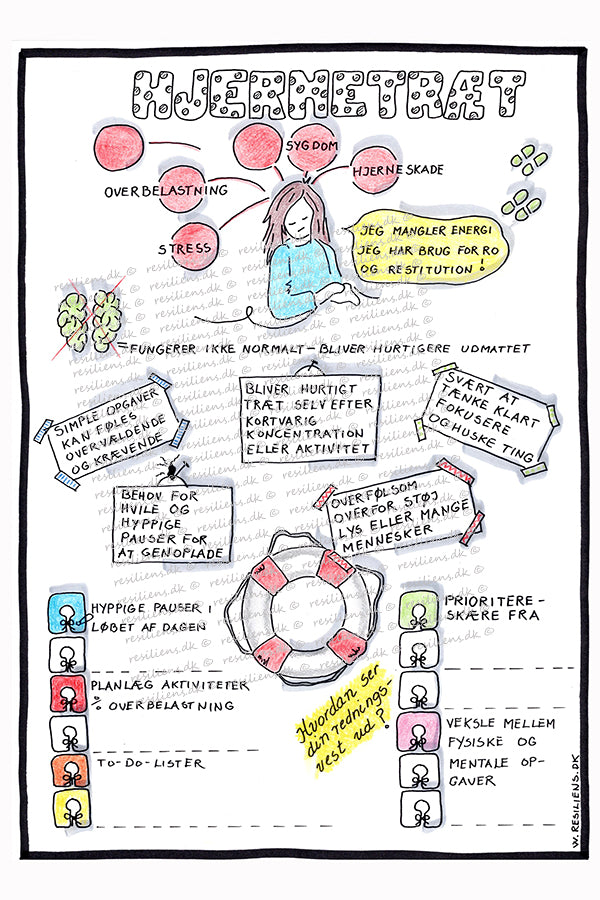 HJERNETRÆT
SYGDOM
HJERNESKADE
OVERBELASTNING
STRESS
JEG MANGLER ENERGI
JEG HAR BRUG FOR RO
OG RESTITUTION!
= FUNGERER IKKE NORMALT - BLIVER HURTIGERE UDMATTET
SIMPLE OPGAVER
KAN FØLES
OVERVÆLDENDE
OG KRÆVENDE
BLIVER HURTIGT
TRÆT SELV EFTER
KORTVARIG
KONCENTRATION
ELLER AKTIVITET
SVÆRT AT
TÆNKE KLART
FOKUSERE
OG HUSKE TING
BEHOV FOR
HVILE OG
HYPPIGE
PAUSER FOR
AT GENOPLADE
OVERFØLSOM
OVERFOR STØJ
LYS ELLER MANGE
MENNESKER
HYPPIGE PAUSER I
LØBET AF DAGEN
PLANLÆG AKTIVITETER
% OVERBELASTNING
TO-DO-LISTER
Hvordan ser
din rednings-
vest ud?
PRIORITERE-
SKÆRE FRA
VEKSLE MELLEM
FYSISKE OG
MENTALE OP-
GAVER
W.RESILIENS.DK
resiliens.dk ©